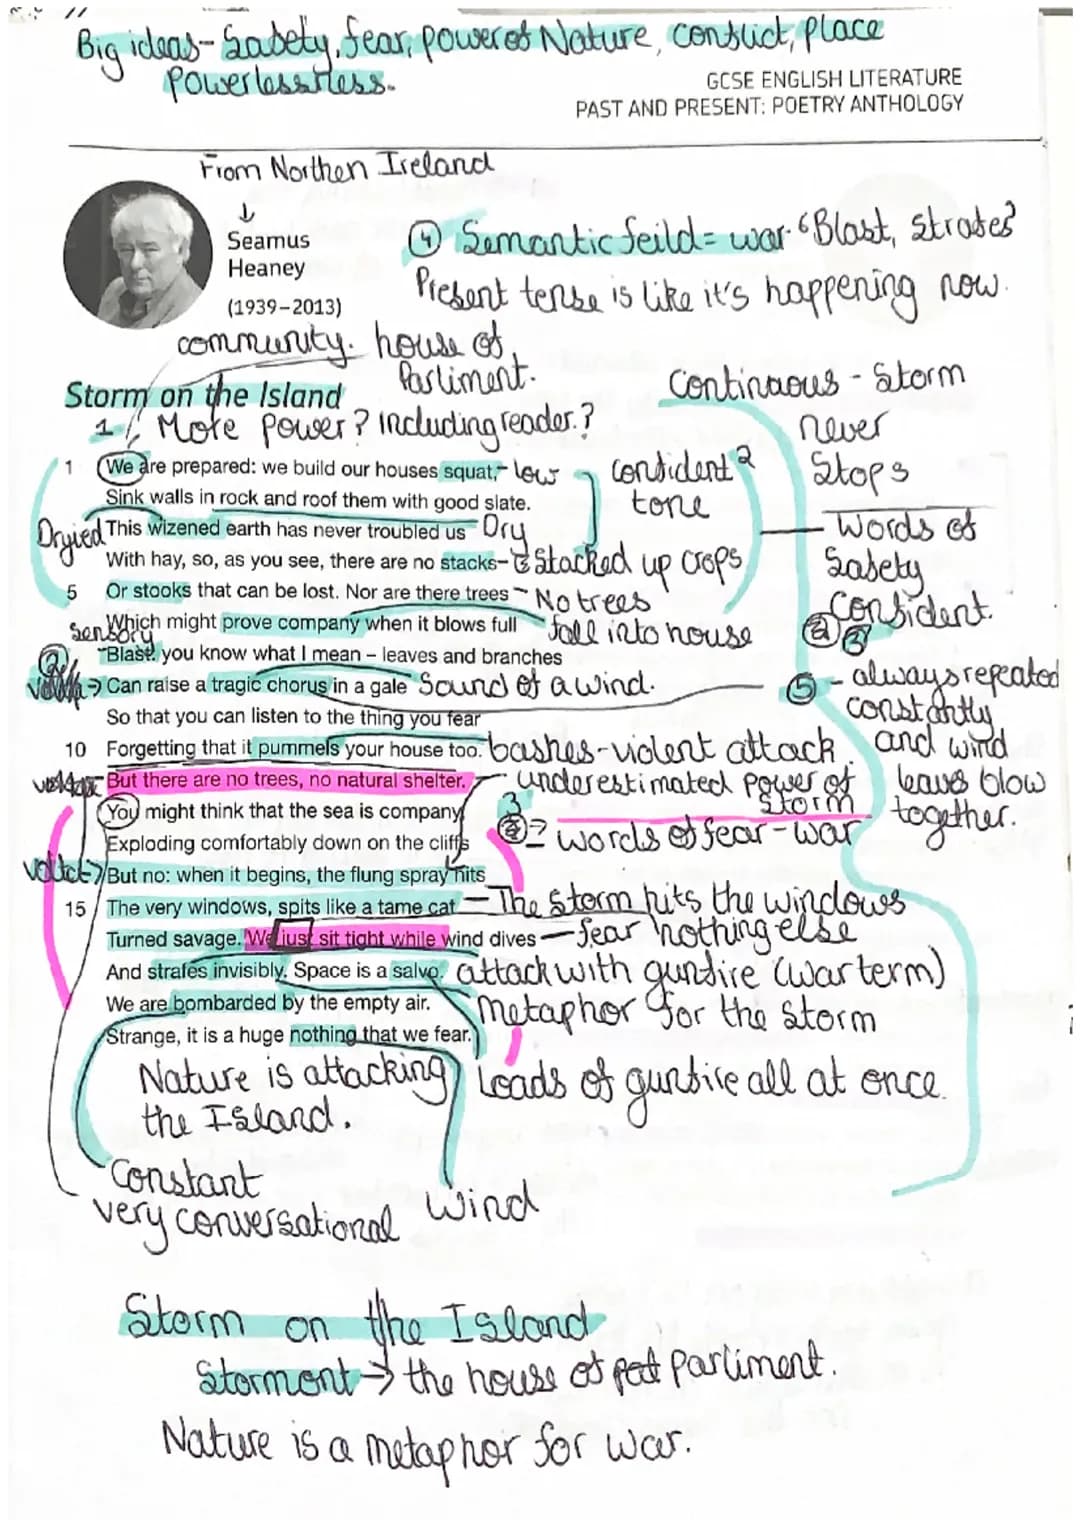 Big ideas- Safety, fear, power of Nature, conflict, place
Powerlessness.
GCSE ENGLISH LITERATURE
PAST AND PRESENT: POETRY ANTHOLOGY
From Northen Ireland
↓
Seamus
Heaney
(1939–2013)
④ Semantic feild= war- "Blast, strafes"
Present tense is like it's happening now.
community. house of
Parliment.
Storm on the Island
1 Mote power? including reader.?
Continuous - Storm
never
Stops
1 We are prepared: we build our houses squat, - low
confident 2
tone
Sink walls in rock and roof them with good slate.
Dryied This wizened earth has never troubled us Dry
Words of
Safety
Confident.
With hay, so, as you see, there are no stacks- Stacked up crops
5 Or stooks that can be lost. Nor are there trees - No trees
Which might prove company when it blows full fall into house
Sensory
Blast: you know what I mean – leaves and branches
Can raise a tragic chorus in a gale Sound of a wind.
⑤ - always repeated
constantly
and wind
leaves blow
together.
So that you can listen to the thing you fear
10 Forgetting that it pummels your house too. bashes-violent attack
But there are no trees, no natural shelter. - underestimated power of
storm
You might think that the sea is company,
3 = words of fear-war
Exploding comfortably down on the cliffs
But no: when it begins, the flung spray hits
15 The very windows, spits like a tame cat - The storm hits the windows
Turned savage. We just sit tight while wind dives - fear nothing else
And strafes invisibly. Space is a salvo. attack with gunfire (war term)
We are bombarded by the empty air. metaphor for the storm
Strange, it is a huge nothing that we fear.
Nature is attacking
the Island.
Loads of gunfire all at once.
Constant
very conversational
Wind
Storm on the Island
Stormont → the house of parliment.
Nature is a metaphor for war.